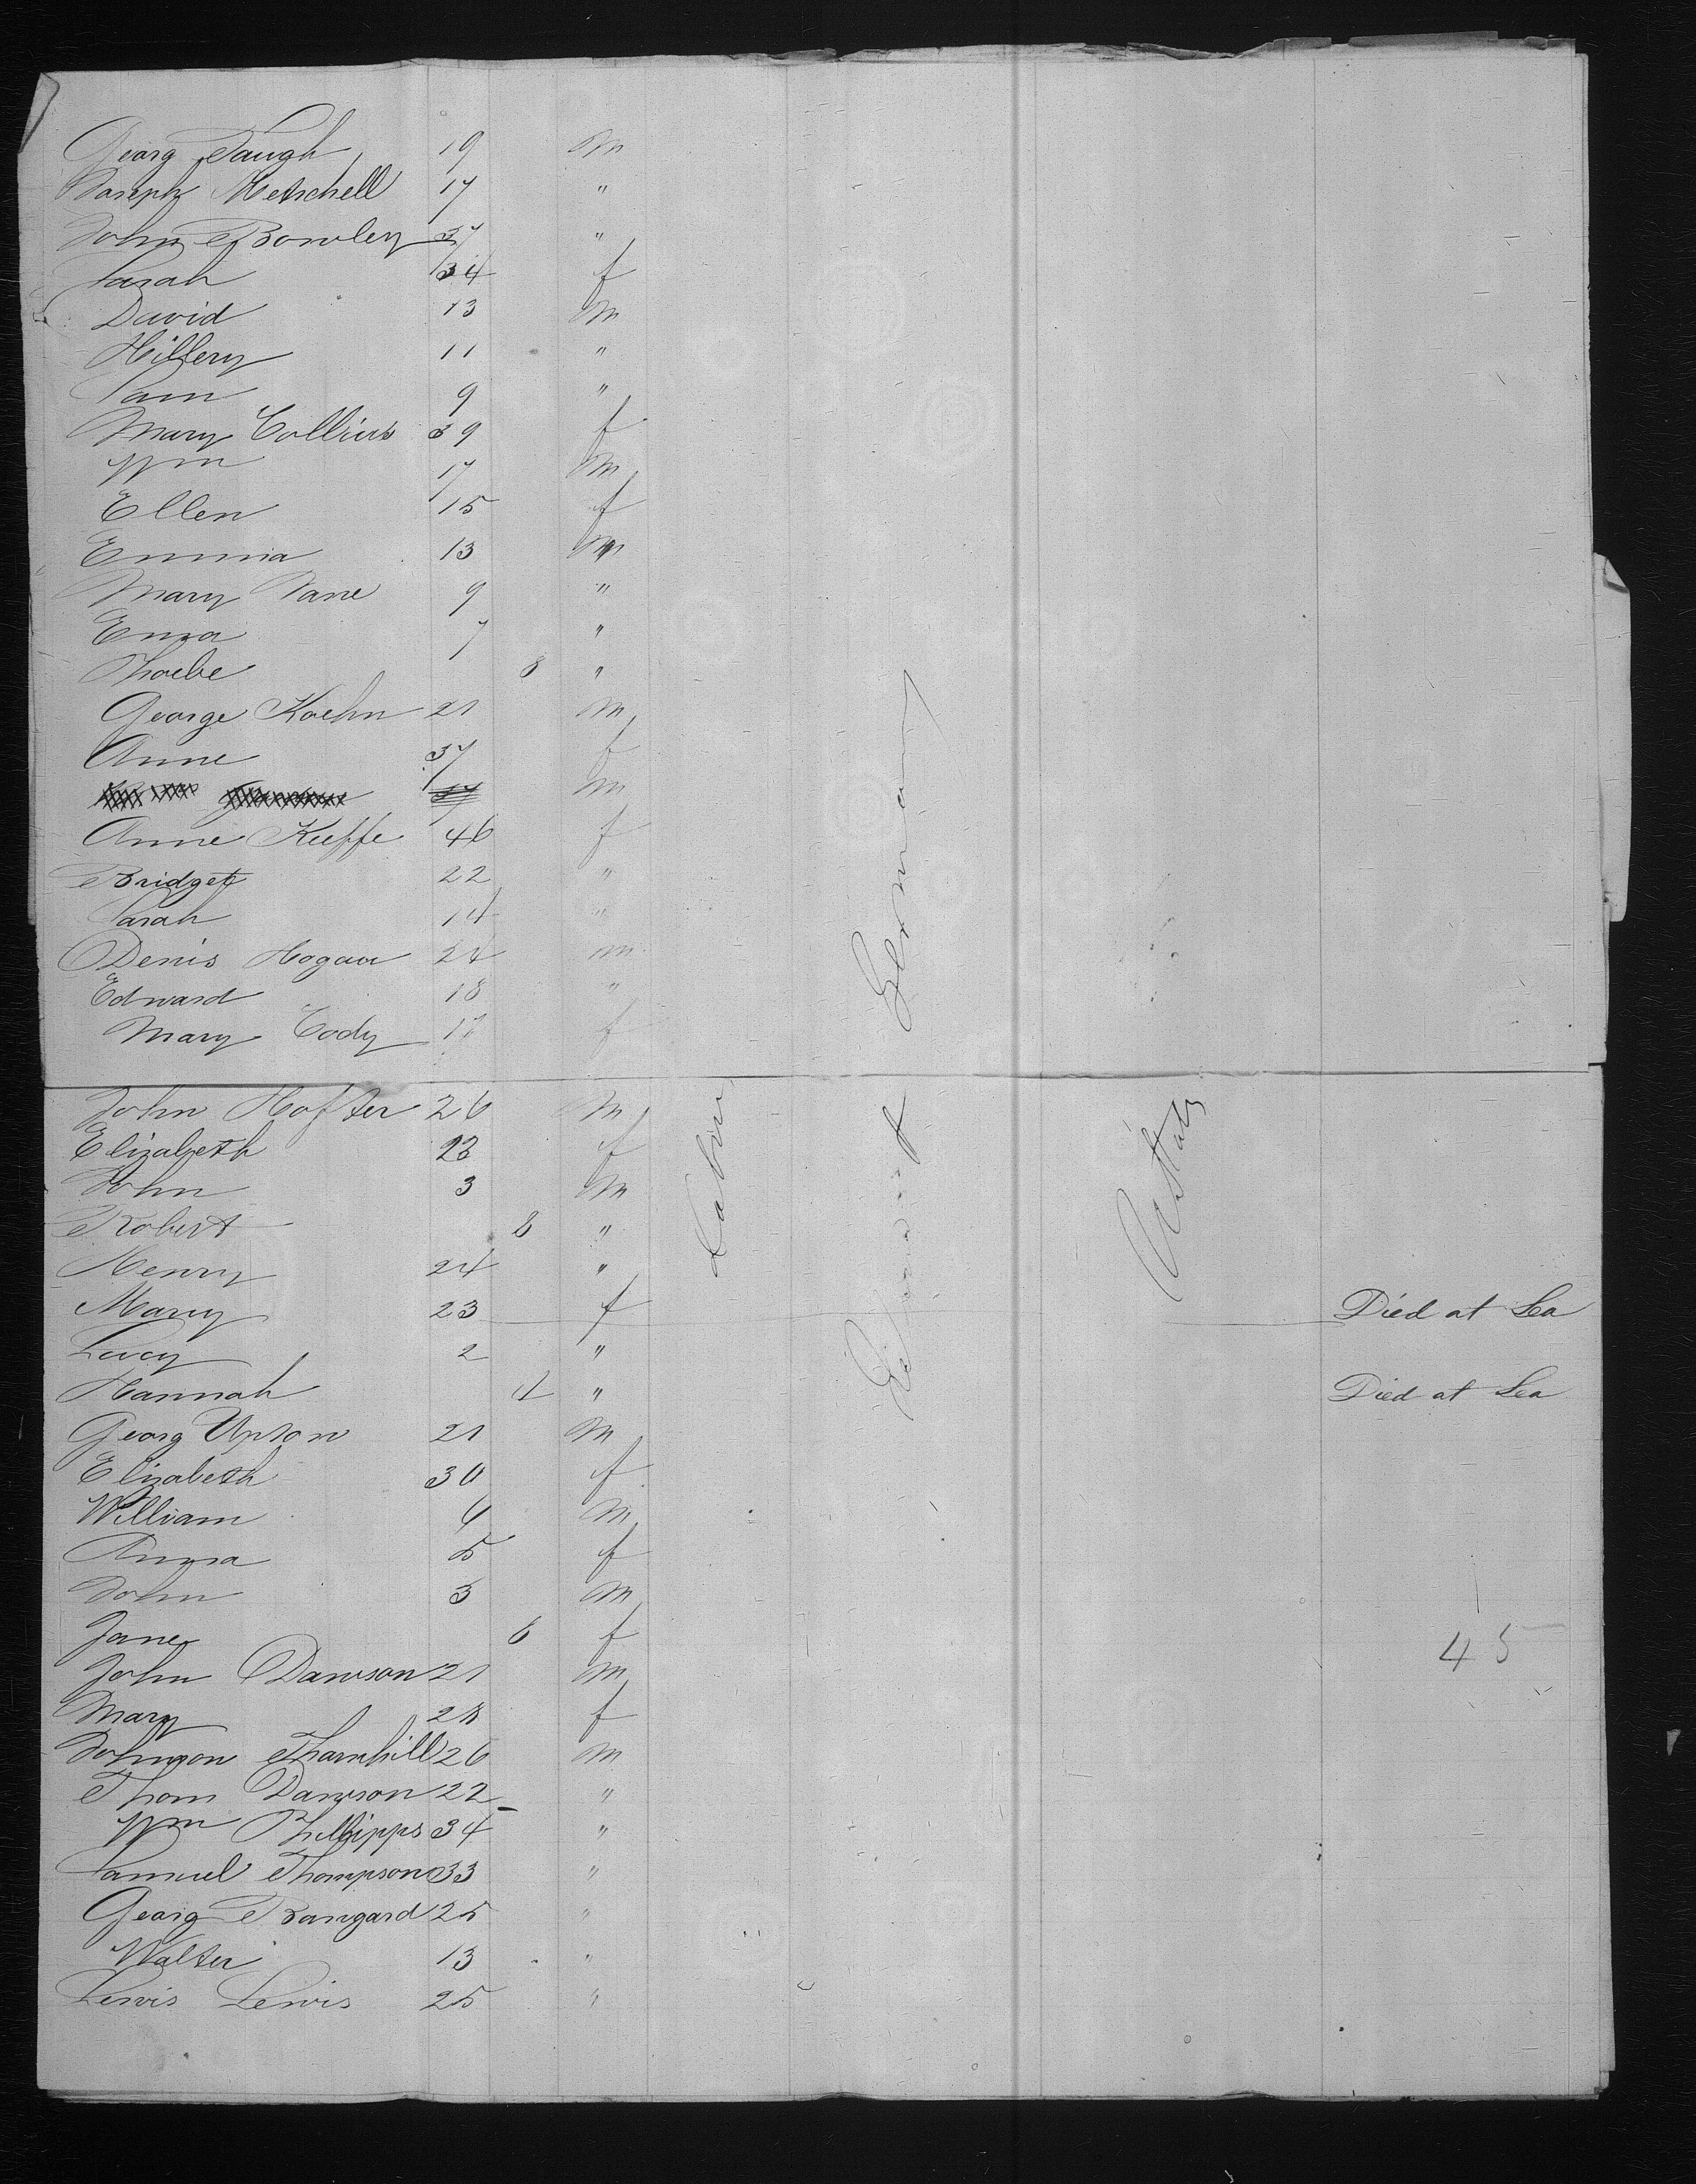 Georg Faugh 19 m
Joseph Metschell 17 "
John Bowley 37 "
Sarah 34 f
David 13 m
Hillery 11 "
Sam 9 "
Mary Collins 39 f
Wm 17 m
Ellen 15 f
Emma 13 m
Mary Jane 9 "
Emma 7 "
Phoebe 8 "
George Koehn 21 m
Anne 37 f
m
Anne Kieffe 46 f
Bridget 22 "
Sarah 14 "
Denis Hogan 24 m
Edward 18 "
Mary Cody 17 f
John Hofter 26 m
Elizabeth 23 f
John 3 m
Robert 8 "
Henry 24 "
Mary 23 f Died at Sea
Lucy 2 "
Hannah 4 " Died at Sea
Georg Upson 21 m
Elizabeth 30 f
William 6 m
Anna 5 f
John 3 m
Jane 6 f
John Dawson 21 m 45
Mary 28 f
Johnson Thamhill 26 m
Thom Dawson 22 "
Wm Phillipps 34 "
Samuel Thompson 33 "
Georg Bamgard 25 "
Walter 13 "
Lewis Lewis 25 "